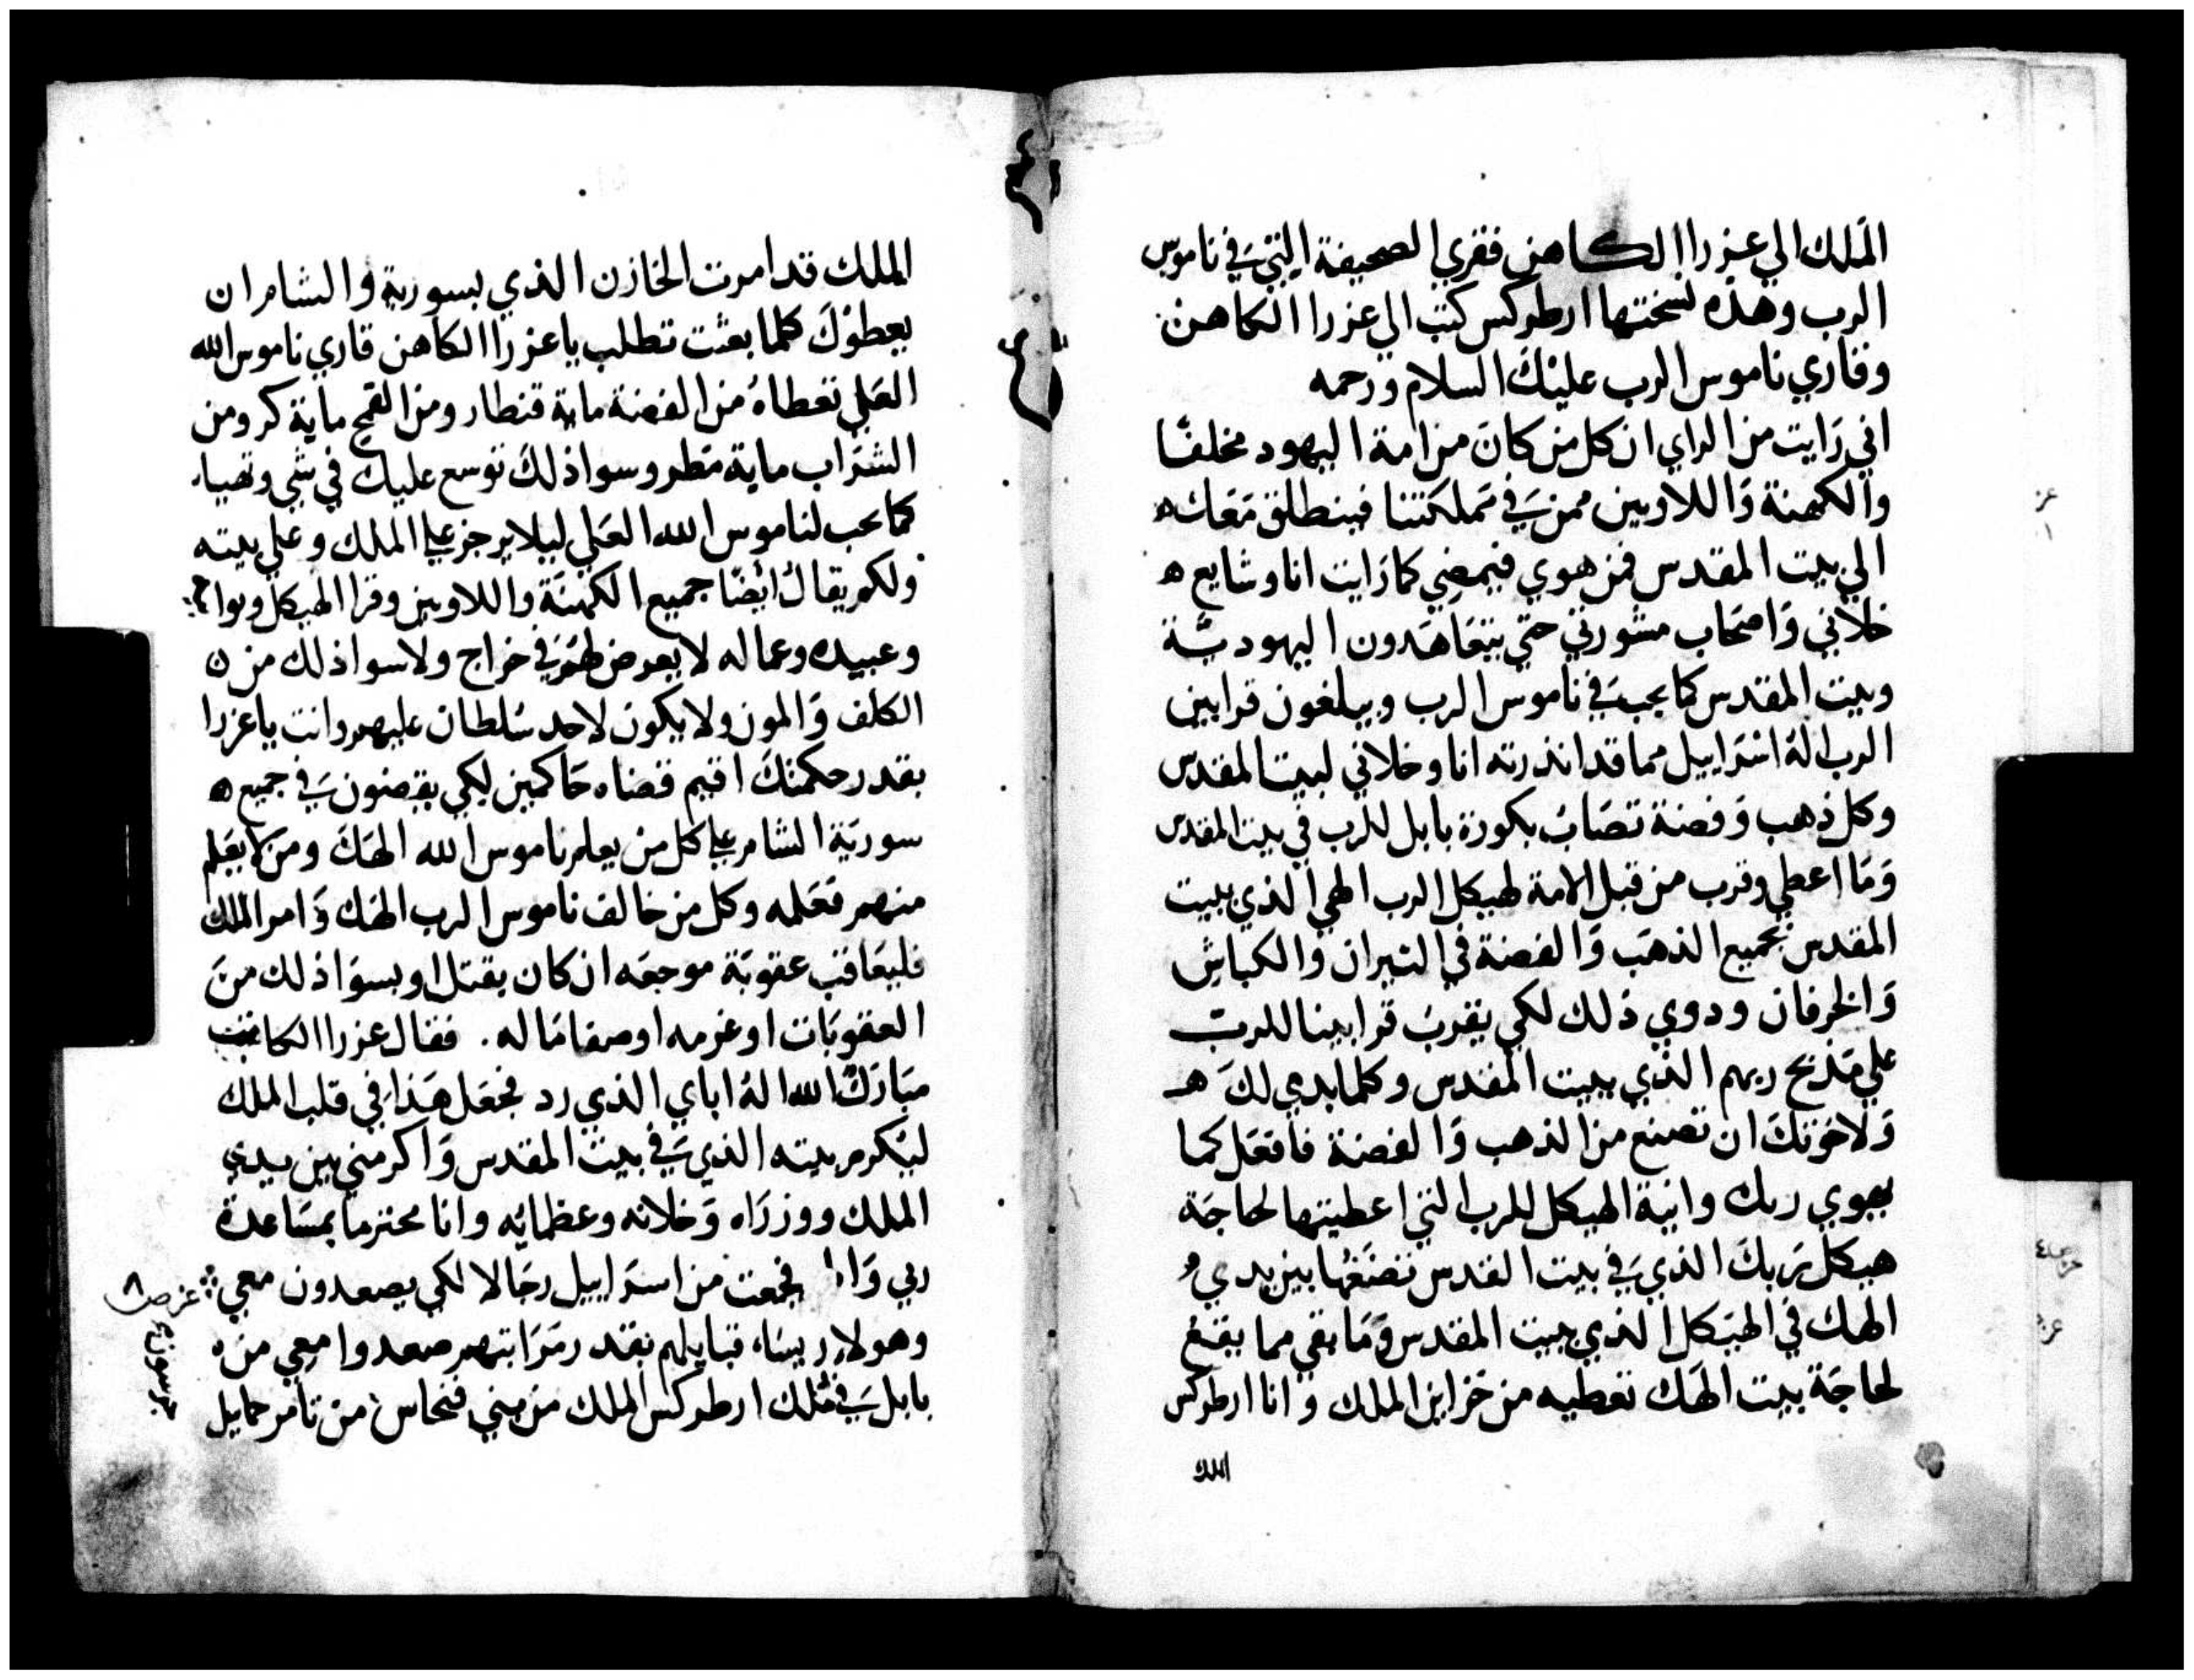 الملك الي عزرا الكاهن فقري الصحيفة التي في ناموس
الرب وهذه نسختها ارطركس كتب الي عزرا الكاهن
وقاري ناموس الرب عليك السلام ورحمه
اني رايت من الراي ان كل من كان من امة اليهود مخلفا
والكهنة واللاويين ممن في مملكتنا فينطلق معك ه
الي بيت المقدس فمن هوي فيمضي كما رايت انا وشايع ه
خلاني واصحاب مشورتي حتي يتعاهدون اليهودية
وبيت المقدس كما يجب في ناموس الرب ويبلغون قرابين
الرب اله اسراييل مما قد انذرته انا وخلاني لبيت المقدس
وكل ذهب وفضة تصاب بكورة بابل للرب في بيت المقدس
وما اعطي وقرب من قبل الامة لهيكل الرب الهي الذي ببيت
المقدس بجميع الذهب والفضة في التيران والكباش
والخرفان ودوي ذلك لكي يقرب قرابينا للرب
علي مذبح ربهم الذي ببيت المقدس وكلما بدي لك ه
ولاخوتك ان تصنع من الذهب والفضة فافعل كما
يهوي ربك وانية الهيكل للرب التي اعطيتها لحاجة
هيكل ربك الذي في بيت القدس تضعها بين يدي
الهك في الهيكل الذي ببيت المقدس وما بقي مما يقع
لحاجة بيت الهك تعطيه من خزاين الملك وانا ارطركس
الملك
الملك قد امرت الخازن الذي بسورية والشام ان
يعطوك كلما بعثت تطلب يا عزرا الكاهن قاري ناموس الله
العلي تعطاه من الفضة ماية قنطار ومن القمح ماية كر ومن
الشراب ماية مطر وسوا ذلك توسع عليك في شي وتهيا
كما يجب لناموس الله العلي ليلا يرجز علي الملك وعلي بيته
ولكم يقال ايضا جميع الكهنة واللاويين وقرا الهيكل وبوا
وعبيده وعماله لا يعرض لهم في خراج ولا سوا ذلك من ن
الكلف والمون ولا يكون لاحد سلطان عليهم وانت يا عزرا
بقدر حكمتك اقيم قضاه حاكمين لكي يقضون في جميع ه
سورية الشام علي كل من يعلم ناموس الله الهك ومن لا يعلم
منهم فعلمه وكل من خالف ناموس الرب الهك وامر الملك
فليعاقب عقوبة موجعه ان كان بقتل او بسوا ذلك من
العقوبات او غرمه او صفا ماله . فقال عزرا الكاتب
مبارك الله اله اباي الذي رد فجعل هذا في قلب الملك
ليكرم بيته الذي في بيت المقدس واكرمني بين يدي
الملك ووزراه وخلانه وعظمايه وانا محترما بمساعدة
ربي وانا فجمعت من اسراييل رجالا لكي يصعدون معي
وهولا ريسا قبايلهم بقدر مراتبهم صعدوا معي من ه
بابل في ملك ارطركس الملك من بني فنحاس من تامر حمايل
عزر ص ٨
جرسون